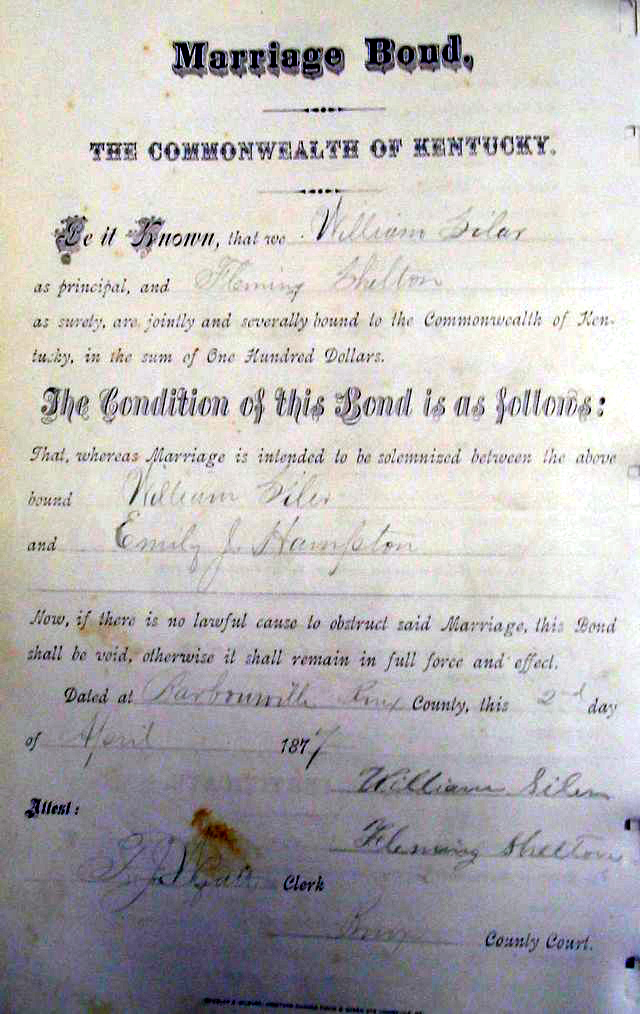 Marriage Bond,
THE COMMONWEALTH OF KENTUCKY.
Be it Known, that we William Siler
as principal, and Fleming Shelton
as surety, are jointly and severally bound to the Commonwealth of Ken-
tucky, in the sum of One Hundred Dollars.
The Condition of this Bond is as follows:
That, whereas Marriage is intended to be solemnized between the above
bound William Siler
and Emily J. Hampton
Now, if there is no lawful cause to obstruct said Marriage, this Bond
shall be void, otherwise it shall remain in full force and effect.
Dated at Barbourville Knox County, this 2nd day
of April 1877
William Siler
Attest:
Fleming Shelton
Clerk
Knox County Court.